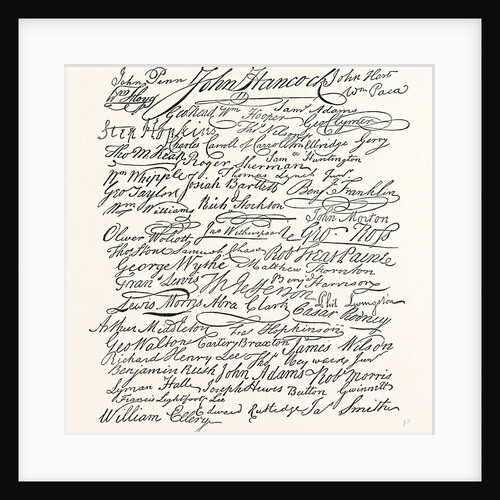 John Penn John Hancock John Hart
Wm Floyd Wm Paca
Geo Read Wm Hooper Saml Adams Geo Clymer
Step Hopkins Thos Nelson Jr
Charles Carroll of Carrollton Elbridge Gerry
Tho M:Kean Roger Sherman Saml Huntington
Wm Whipple Thomas Lynch Junr
Geo Taylor Josiah Bartlett Benj Franklin
Wm Williams Richd Stockton
John Morton
Oliver Wolcott Jno Witherspoon Geo. Ross
Thos Stone Samuel Chase Robt Treat Paine
George Wythe Matthew Thornton
Frans Lewis Th Jefferson Benj Harrison
Lewis Morris Abra Clark Phil Livingston
Cesar Rodney
Arthur Middleton Fras Hopkinson
Geo Walton Carter Braxton James Wilson
Richard Henry Lee Thos Heyward Junr
Benjamin Rush John Adams Robt Morris
Lyman Hall Joseph Hewes Button Gwinnett
Francis Lightfoot Lee
William Ellery Edward Rutledge Ja Smith